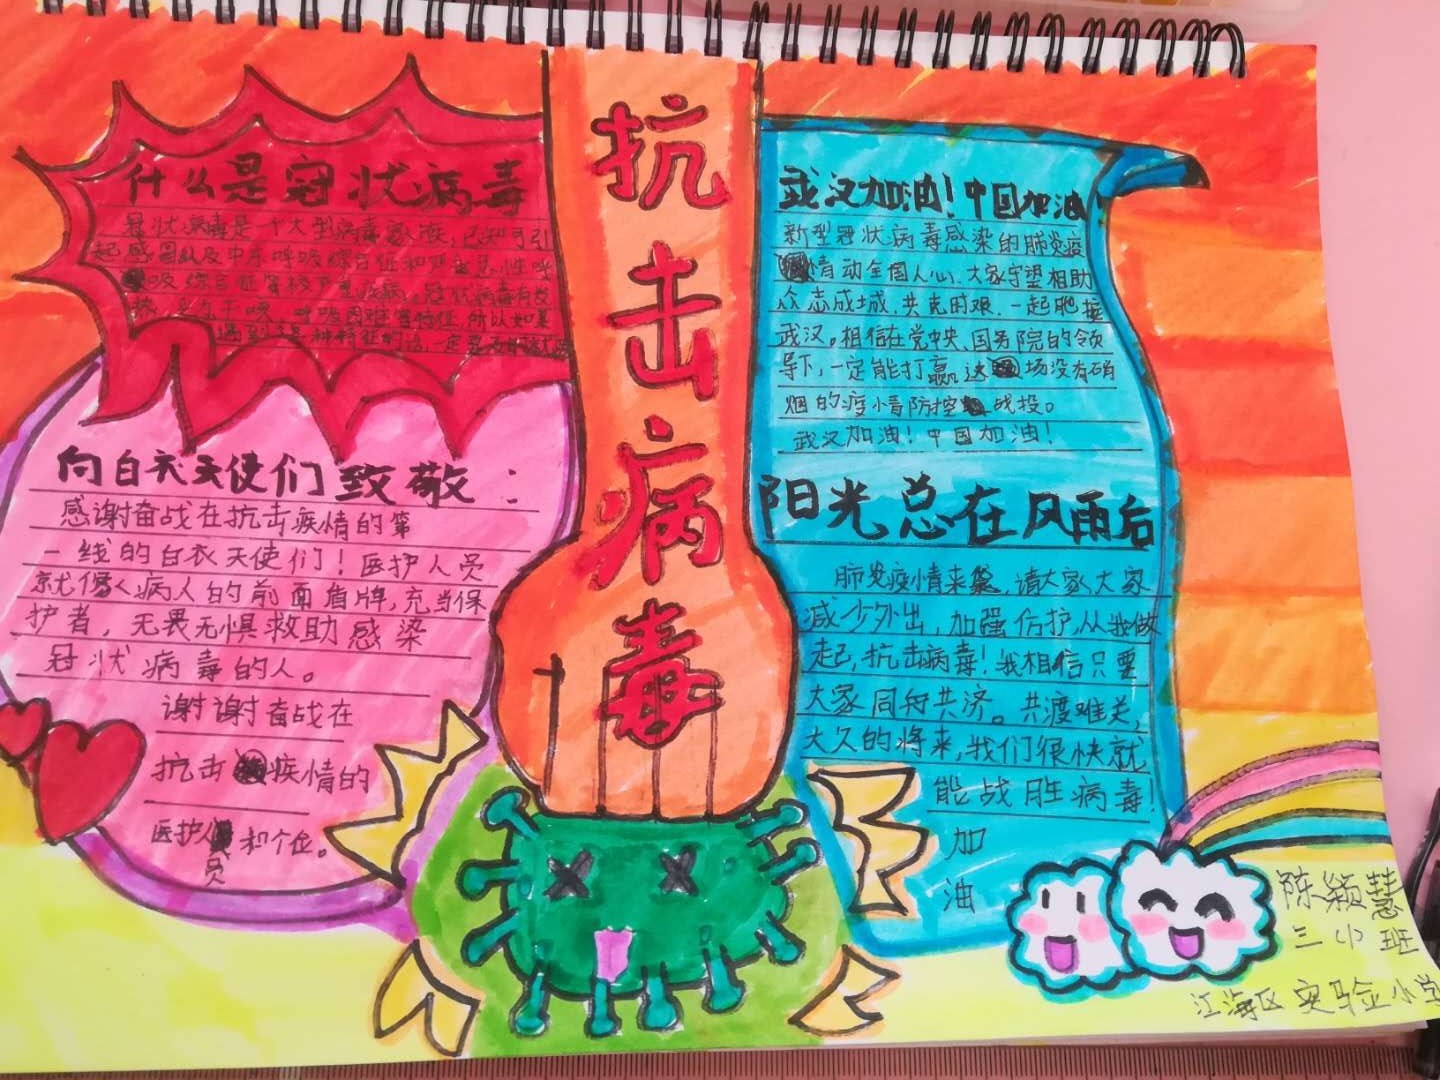 抗击病毒
什么是冠状病毒
冠状病毒是一个大型病毒家族,已知可引
起感冒以及中东呼吸综合征和严重急性呼
吸综合征等较严重疾病。冠状病毒有发
热、乏力、干咳、呼吸困难等特征,所以如果
遇到这种特征的话,一定要及时
向白衣天使们致敬:
感谢奋战在抗击疾情的第
一线的白衣天使们!医护人员
就像病人的前面盾牌,充当保
护者,无畏无惧救助感染
冠状病毒的人。
谢谢奋战在
抗击疾情的
医护人员和个位。
武汉加油!中国加油
新型冠状病毒感染的肺炎疫
情动全国人心、大家守望相助
众志成城、共克时艰、一起肥拉
武汉。相信在党中央、国务院的领
导下,一定能打赢这场没有硝
烟的疫情防控战投。
武汉加油!中国加油!
阳光总在风雨后
肺炎疫情来袭,请大家大家
减少外出,加强防护,从我做
起,抗击病毒!我相信只要
大家同舟共济。共渡难关,
大久的将来,我们很快就
能战胜病毒!
加
油
陈颖慧
三小班
江海区实验小学